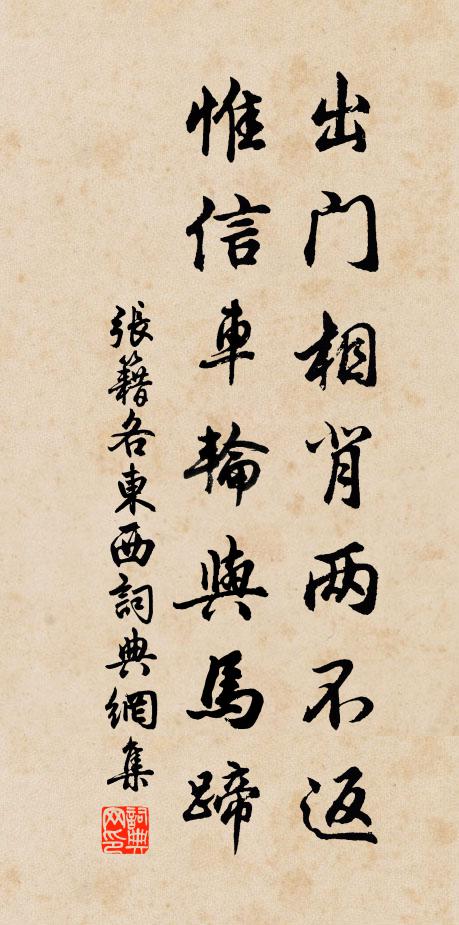 出门相背两不返
惟信車輪與馬蹄
張籍各東西詞典網集
詞典网印